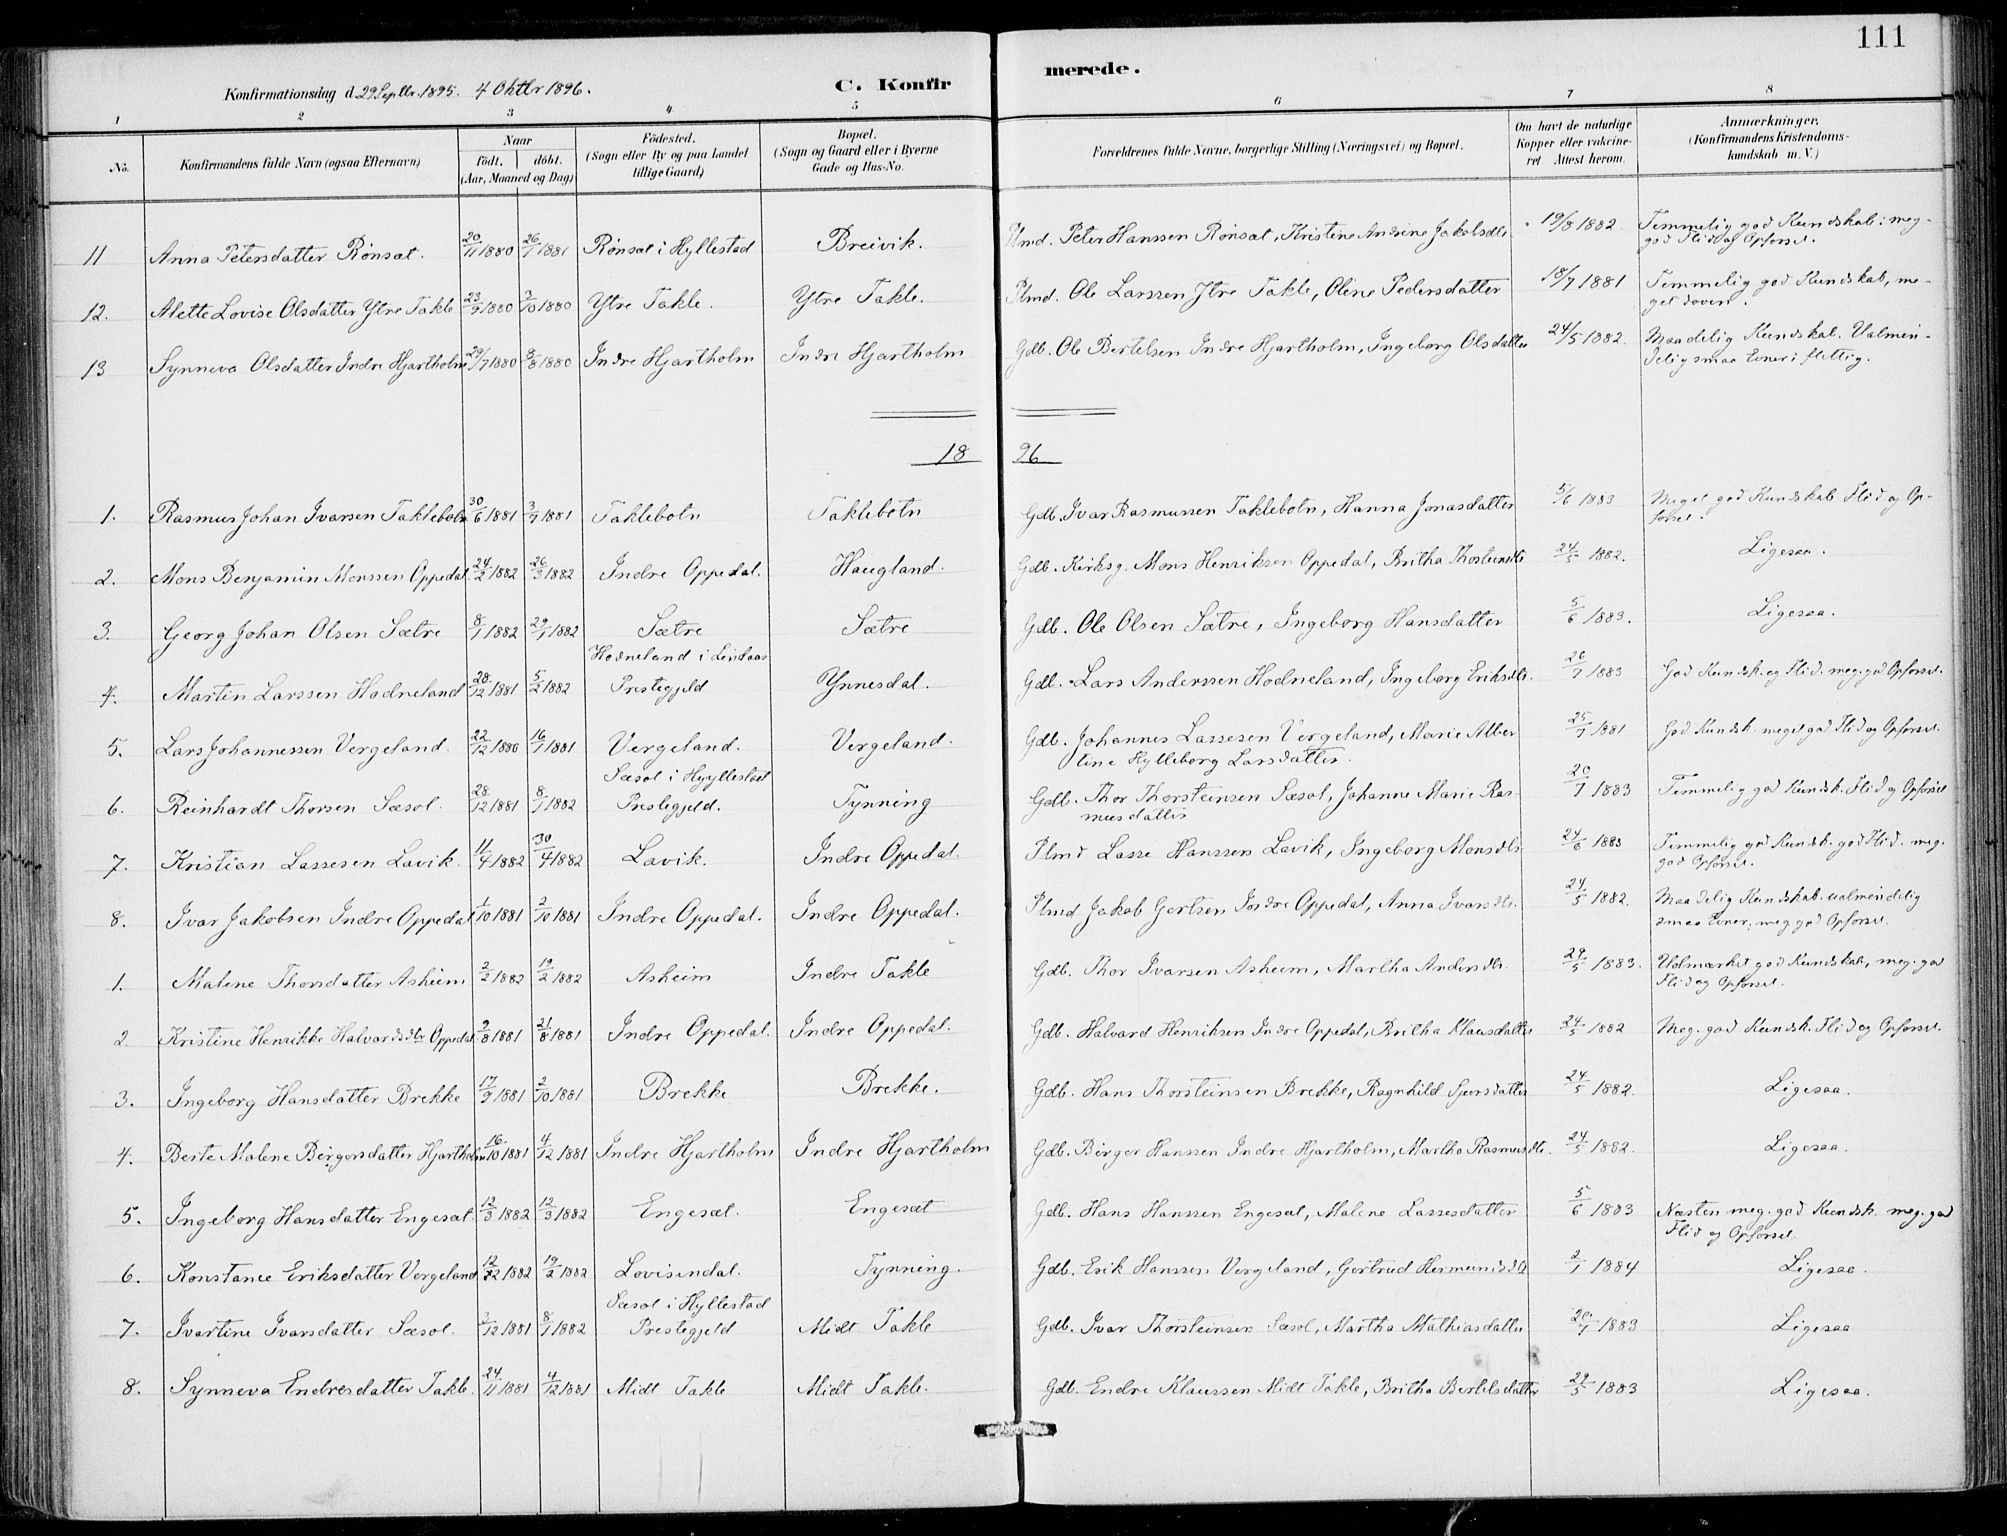 111
C. Konfirmerede.
Konfirmationsdag d. 29 Septbr. 1895. 4 Oktbr 1896.
1 2 3 4 5 6 7 8
No. Konfirmandens fulde Navn (ogsaa Efternavn) Naar födt. döbt. (Aar, Maaned og Dag) Födested. (Sogn eller By og paa Landet tillige Gaard) Bopæl. (Sogn og Gaard eller i Byerne Gade og Hus-No. Forældrenes fulde Navne, borgerlige Stilling (Næringsvei) og Bopæl. Om havt de naturlige Kopper eller vakcineret Attest herom. Anmærkninger. (Konfirmandens Kristendomskundskab m. V.)
11 Anna Petersdatter Rönsæt. 20/11 1880 26/1 1881 Rönsæt i Hyllestad Breivik. Plmd. Peter Hanssen Rönsæt, Kristine Andrine Jakobsdtr. 19/8 1882. Temmelig god Kundskab; meg. god Flid og Opförsel.
12. Alette Lovise Olsdatter Ytre Takle 23/9 1880 3/10 1880 Ytre Takle. Ytre Takle. Plmd. Ole Larssen Ytre Takle, Oline Pedersdatter 18/7 1881 Temmelig god Kundskab, meget doven.
13 Synneva Olsdatter Indre Hjartholm 29/7 1880 8/8 1880 Indre Hjartholm Indre Hjartholm Gdb. Ole Bertelsen Indre Hjartholm, Ingeborg Olsdatter 24/5 1882. Maadelig Kundskab. Ualmindelig smaa Evner; flittig.
18 96
1. Rasmus Johan Ivarsen Taklebotn 30/6 1881 3/7 1881 Taklebotn Taklebotn Gdb. Ivar Rasmussen Taklebotn, Hanna Jonasdatter 5/6 1883 Meget god Kundskab Flid og Opförsel.
2. Mons Benjamin Monssen Oppedal 24/2 1882 26/3 1882 Indre Oppedal. Haugland. Gdb. Kirksg. Mons Henriksen Oppedal, Britha Thosteinsdtr 24/5 1882. Ligesaa.
3. Georg Johan Olsen Sætre 8/1 1882 29/1 1882 Sætre Sætre Gdb. Ole Olsen Sætre, Ingeborg Hansdatter 5/6 1883. Ligesaa.
4. Martin Larssen Hodneland 28/12 1881 5/2 1882 Hodneland i Lindaas Prestegjeld Ynnesdal. Gdb. Lars Anderssen Hodneland, Ingeborg Eriksdtr. 26/7 1883 God Kundsk. og Flid. meg. god Opförsel.
5. Lars Johannessen Vergeland. 22/12 1880 16/1 1881 Vergeland. Vergeland. Gdb. Johannes Lassesen Vergeland, Marie Albertine Hylleborg Larsdatter. 25/7 1881 God Kundsk. meget god Flid og Opförsel.
6. Reinhardt Thorsen Sæsol. 28/12 1881 8/1 1882 Sæsol i Hyyllestad Prestegjeld. Tynning Gdb. Thor Thorsteinsen Sæsol, Johanne Marie Rasmusdatter 20/7 1883 Temmelig god Kundsk. Flid og Opförsel
7. Kristian Lassesen Lavik. 11/4 1882 30/4 1882 Lavik. Indre Oppedal. Plmd Lasse Hanssen Lavik, Ingeborg Monsdtr. 24/6 1883 Temmelig god Kundsk. god Flid. meg. god Opförsel.
8. Ivar Jakobsen Indre Oppedal 1/10 1881 2/10 1881 Indre Oppedal. Indre Oppedal. Plmd Jakob Gertsen Indre Oppedal, Anna Ivarsdtr. 24/5 1882. Maadelig Kundskab. ualmindelig smaa Evner; meg. god Opförsel.
1. Malene Thorsdatter Asheim 2/2 1882 19/2 1882 Asheim Indre Takle Gdb. Thor Ivarsen Asheim, Martha Andersdtr. 29/5 1883. Udmærket god Kundskab, meg. god Flid og Opförsel.
2. Kristine Henrikke Halvardsdtr Oppedal. 9/8 1881 21/8 1881 Indre Oppedal. Indre Oppedal. Gdb. Halvard Henriksen Indre Oppedal, Britha Klausdatter 24/5 1882 Meg. god Kundsk. Flid og Opförsel.
3. Ingeborg Hansdatter Brekke 17/9 1881 2/10 1881 Brekke Brekke. Gdb. Hans Thorsteinsen Brekke, Ragnhild Sjursdatter 24/5 1882. Ligesaa.
4. Berte Malene Börgersdatter Hjartholm 16/10 1881 4/12 1881 Indre Hjartholm Indre Hjartholm Gdb. Börger Hanssen Indre Hjartholm, Martha Rasmusdtr. 24/5 1882. Ligesaa.
5. Ingeborg Hansdatter Engesæt. 12/3 1882 12/3 1882 Engesæt. Engesæt Gdb. Hans Hanssen Engesæt, Malene Lassesdatter 5/6 1883 Næsten meg. god Kundsk. meg. god Flid og Opförsel.
6. Konstance Eriksdatter Vergeland 12/2 1882 19/2 1882 Lovisendal. Tynning. Gdb. Erik Hanssen Vergeland, Gertrud Hermundsdtr 2/1 1884 Ligesaa.
7. Ivartine Ivarsdatter Sæsol. 2/12 1881 8/1 1882 Sæsol i Hyllestad Prestegjeld Midt Takle Gdb. Ivar Thorsteinsen Sæsol, Martha Mathiasdatter 20/7 1883 Ligesaa
8. Synneva Endresdatter Takle. 24/11 1881 4/12 1881 Midt Takle Midt Takle. Gdb. Endre Klaussen Midt Takle, Britha Bertelsdatter 29/5 1883 Ligesaa.